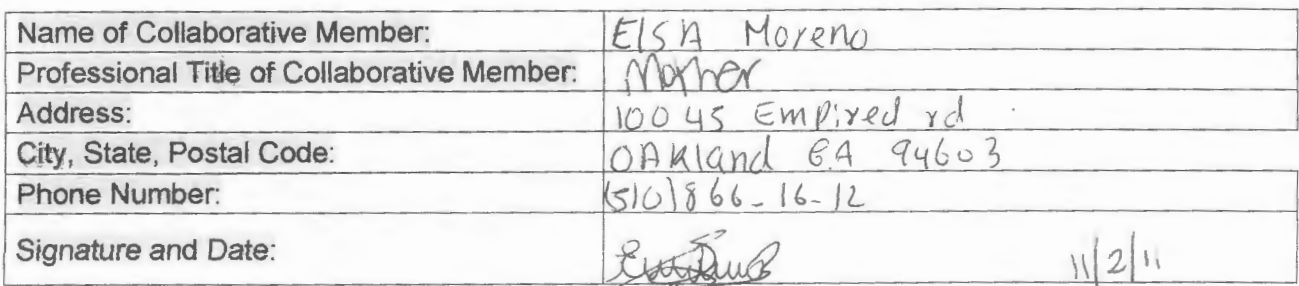 Name of Collaborative Member: ElsA Moreno
Professional Title of Collaborative Member: Mother
Address: 10045 Empired rd
City, State, Postal Code: OAKland CA 94603
Phone Number: (510)866-16-12
Signature and Date: 11/2/11